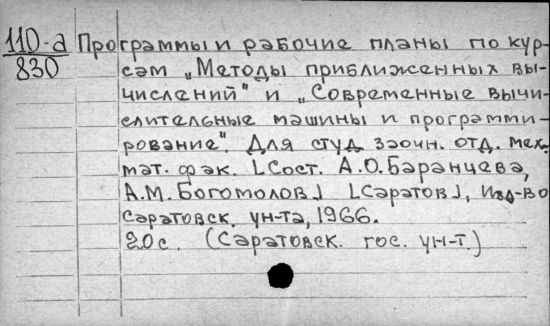 110-а Программы и рабочие планы по кур-
830 сам „Методы приближенных вы-
числений" и „Современные вычи-
слительные машины и программи-
рование". Для студ. заочн. отд. мех.
мат. фак. [Сост. А.О. Баранцева,
А.М. Богомолов] [Саратов], Изд-во
Саратовск. ун-та, 1966.
20с. (Саратовск. гос. ун-т.)